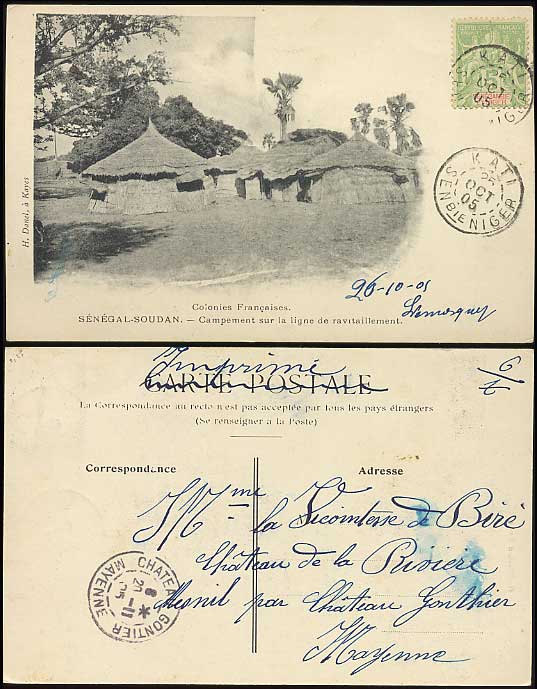 H. Danel, à Kayes
KATI
OCT
05
NIGER
KATI
OCT
05
SEN BIE NIGER
26-10-05
Colonies Françaises.
SÉNÉGAL-SOUDAN. — Campement sur la ligne de ravitaillement.
Imprimé
CARTE POSTALE
La Correspondance au recto n'est pas acceptée par tous les pays étrangers
(Se renseigner a la Poste)
Correspondance
Adresse
Mme la Vicomtesse de Biré
Château de la Rivière
Mesnil par Château Gonthier
Mayenne
CHATEAU-GONTIER
MAYENNE